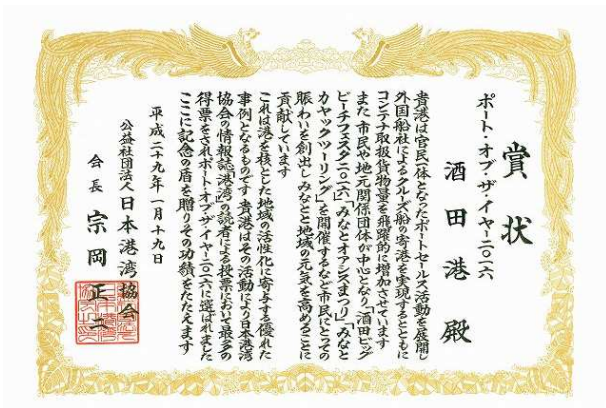 賞状
ポート・オブ・ザ・イヤー二〇一六
酒田港 殿
貴港は官民一体となったポートセールス活動を展開し
外国船社によるクルーズ船の寄港を実現するとともに
コンテナ取扱貨物量を飛躍的に増加させています
また市民や地元関係団体が中心となり「酒田ビッグ
ビーチフェスタ二〇一六」「みなとオアシスまつり」「みなと
カヤックツーリング」を開催するなど市民にとっての
賑わいを創出しみなとと地域の元気を高めることに
貢献しています
これは港を核とした地域の活性化に寄与する優れた
事例となるものです 貴港はその活動により日本港湾
協会の情報誌「港湾」の読者による投票において最多の
得票をされポート・オブ・ザ・イヤー二〇一六に選ばれました
ここに記念の盾を贈りその功績をたたえます
平成二十九年一月十九日
公益社団法人 日本港湾協会
会長 宗岡正二